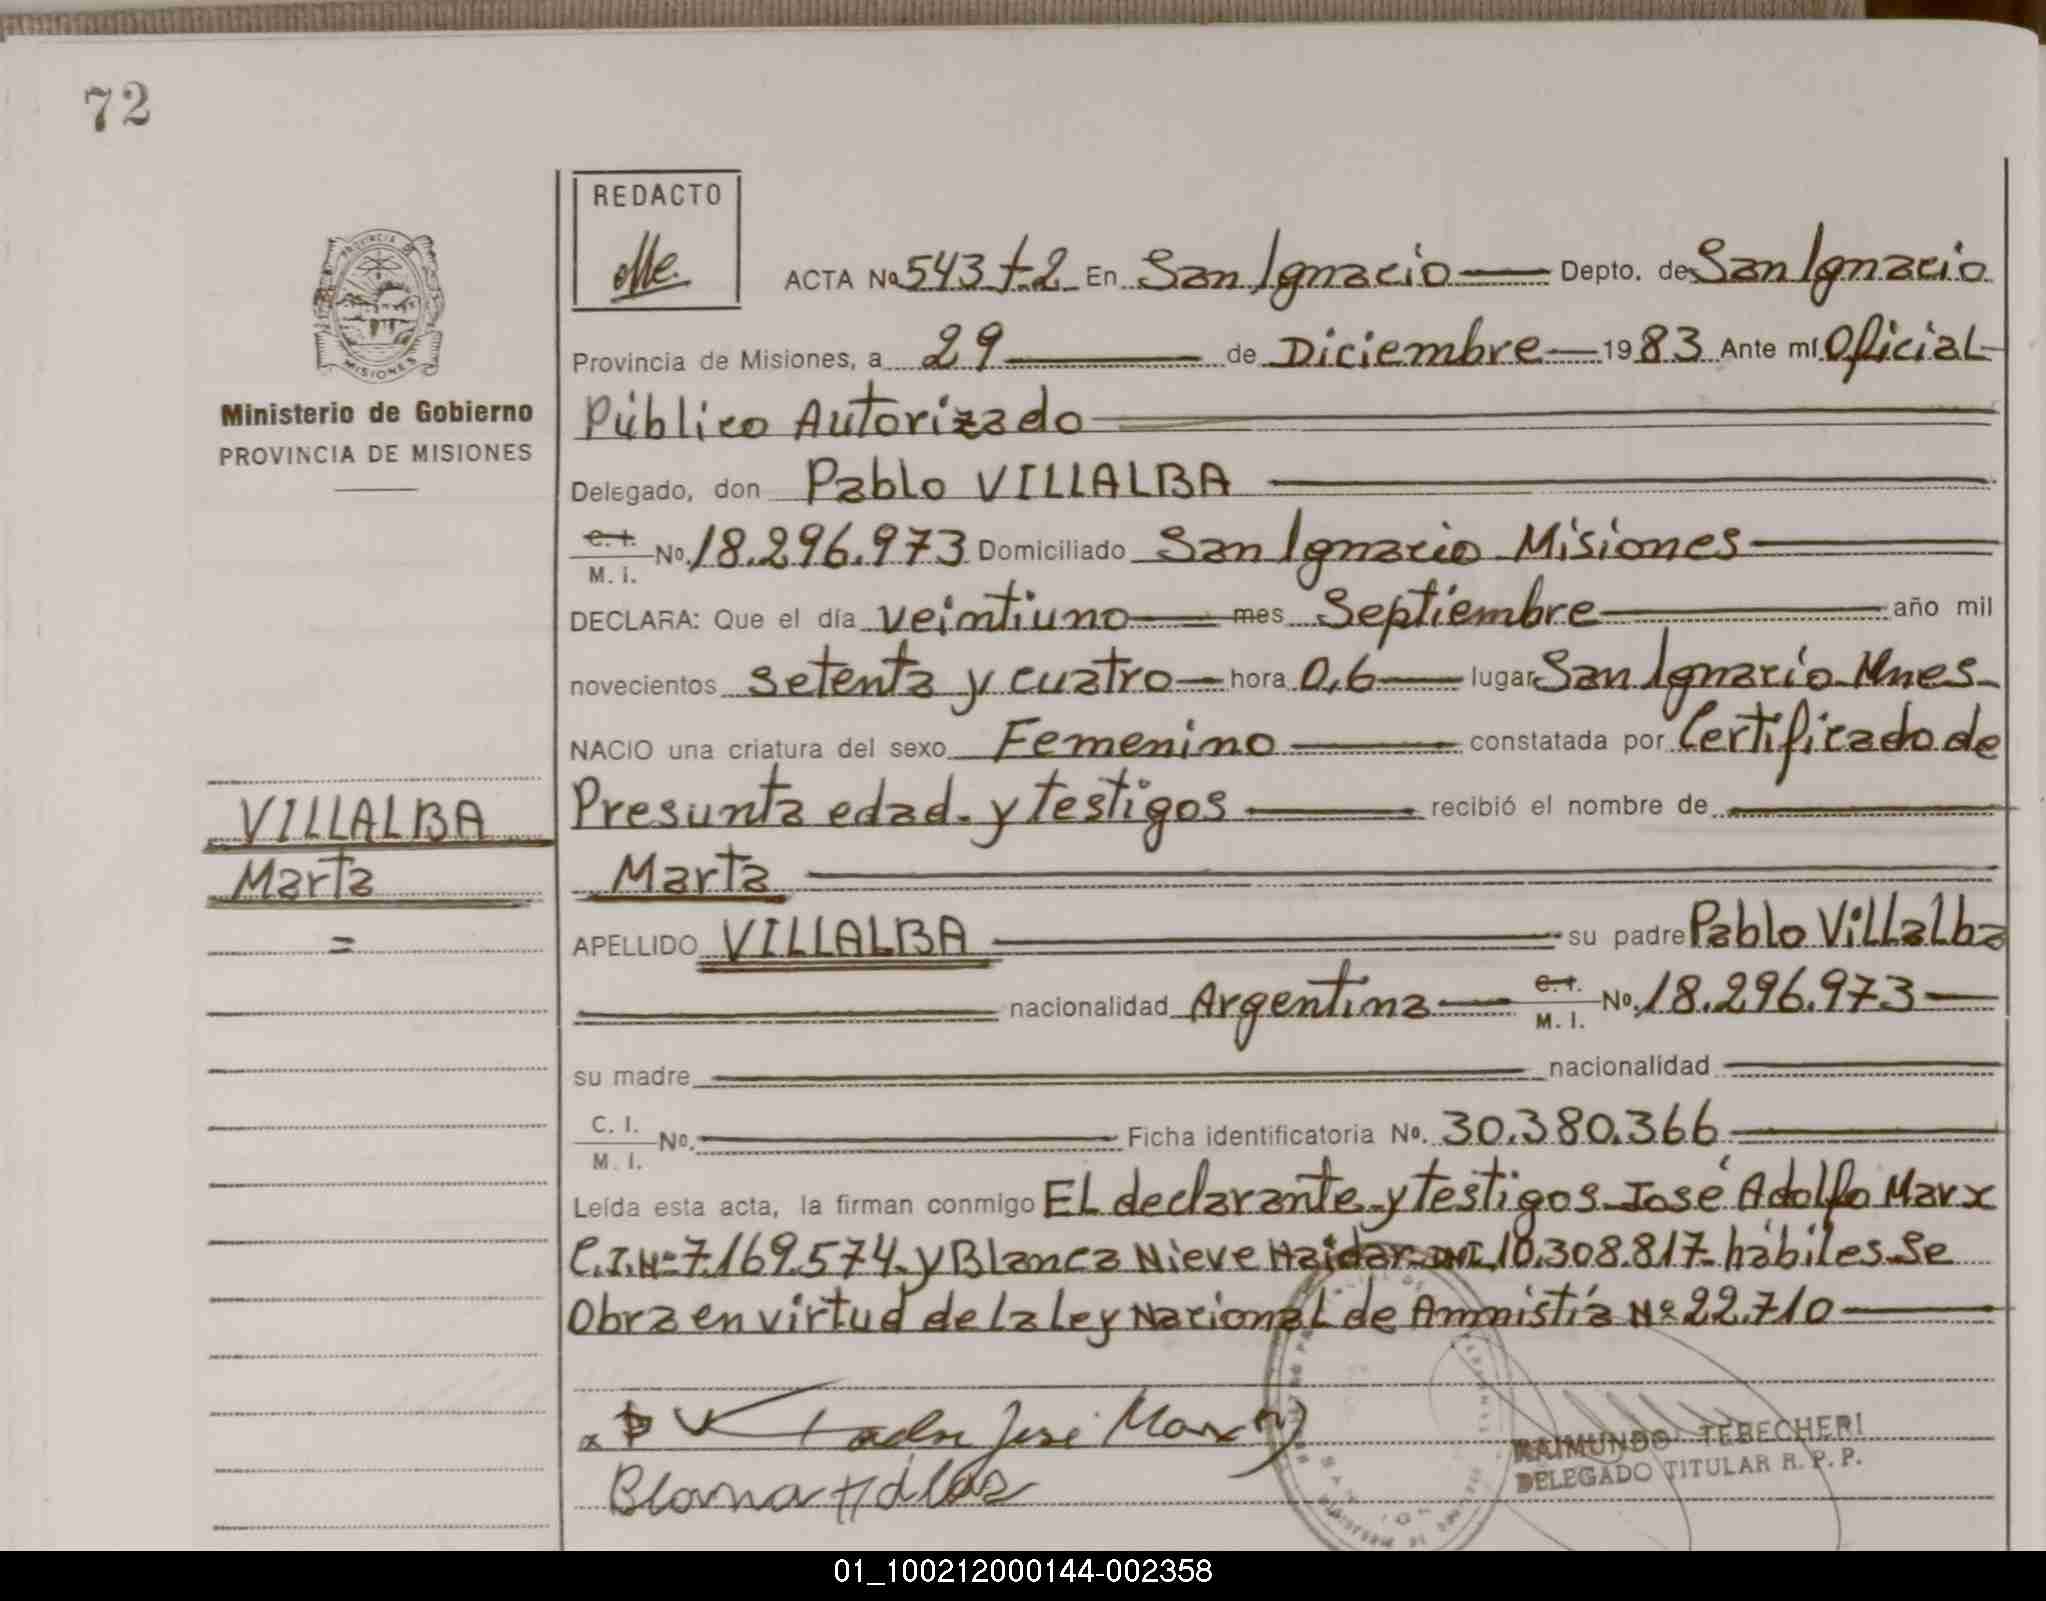 72
REDACTO
PROVINCIA DE
MISIONES
Ministerio de Gobierno
PROVINCIA DE MISIONES
ACTA Nº 543 t-2 En San Ignacio Depto. de San Ignacio
Provincia de Misiones, a 29 de Diciembre 1983 Ante mí Oficial
Público Autorizado
Delegado, don Pablo VILLALBA
C. I. / M. I. Nº 18.296.973 Domiciliado San Ignacio Misiones
DECLARA: Que el día veintiuno mes Septiembre año mil
novecientos setenta y cuatro hora 0,6 lugar San Ignacio Mnes
NACIO una criatura del sexo Femenino constatada por Certificado de
Presunta edad. y testigos recibió el nombre de
Marta
APELLIDO VILLALBA su padre Pablo Villalba
nacionalidad Argentina C. I. / M. I. Nº 18.296.973
su madre nacionalidad
C. I. / M. I. Nº Ficha identificatoria Nº 30.380.366
Leída esta acta, la firman conmigo El declarante y testigos José Adolfo Marx
C.I.Nº 7.169.574. y Blanca Nieve Haidar DNI 10.308.817 hábiles. Se
Obra en virtud de la ley Nacional de Amnistía Nº 22.710
VILLALBA
Marta
=
José Marx
RAIMUNDO TEBECHERI
DELEGADO TITULAR R. P. P.
01_100212000144-002358